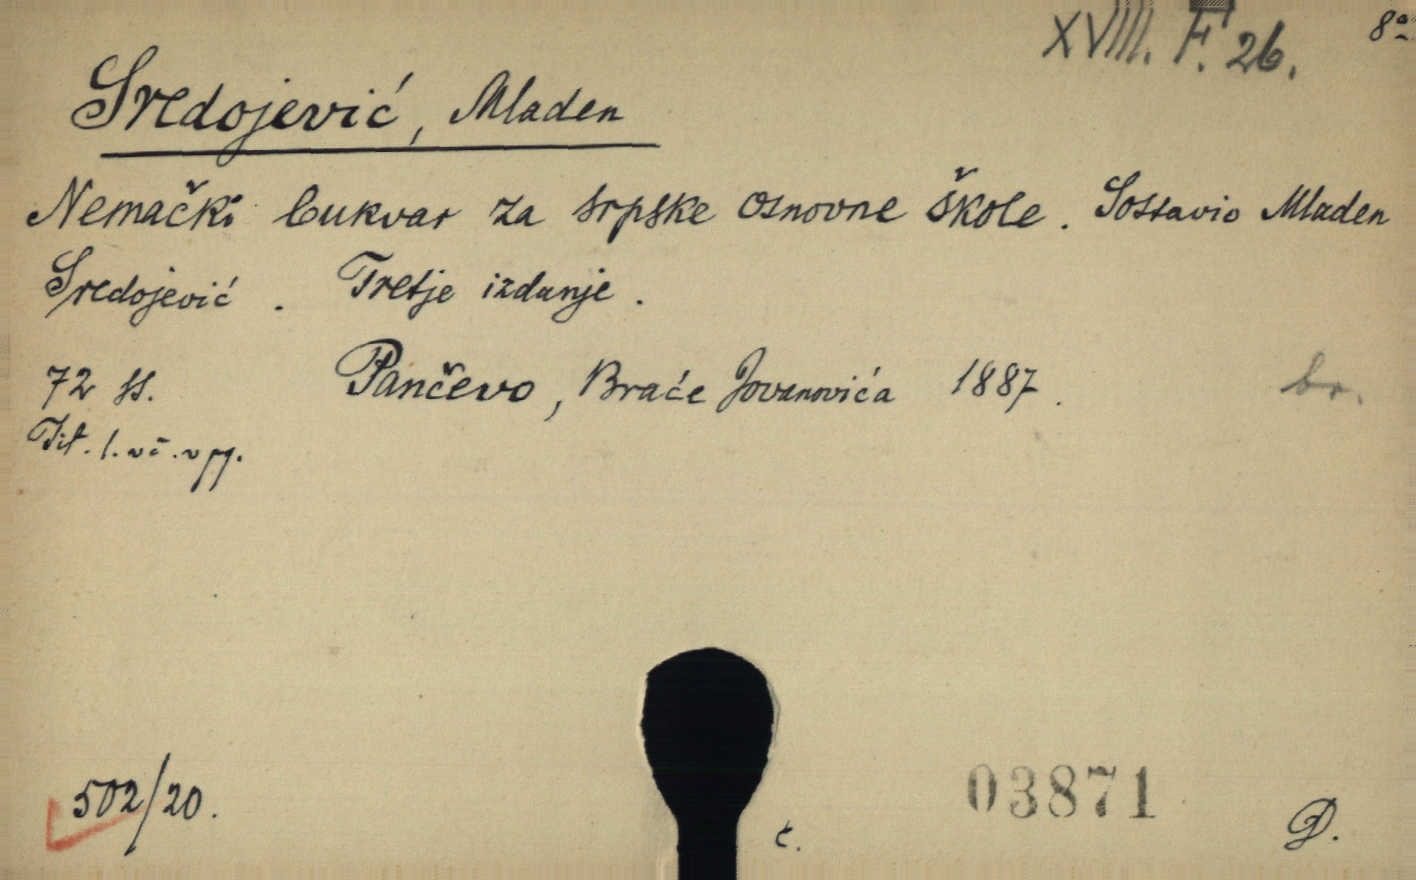 XVIII. F. 26. 8°
Sredojević, Mladen
Nemački bukvar za srpske osnovne škole. Sostavio Mladen
Sredojević. Tretje izdanje.
72 ss. Pančevo, Braće Jovanovića 1887. br.
Tit. l. vč. v pg.
502/20. č. 03871 D.